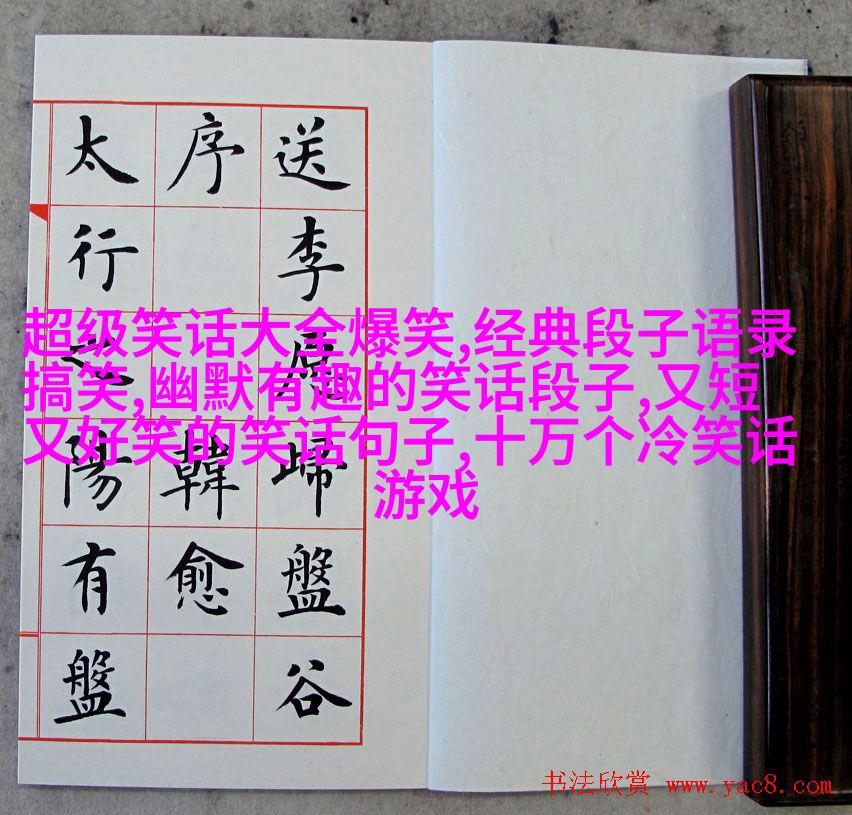 送李愿歸盤谷
序韓愈
太行之陽有盤
超级笑话大全爆笑,经典段子语录
搞笑,幽默有趣的笑话段子,又短
又好笑的笑话句子,十万个冷笑话
游戏
书法欣赏 www.yac8.com